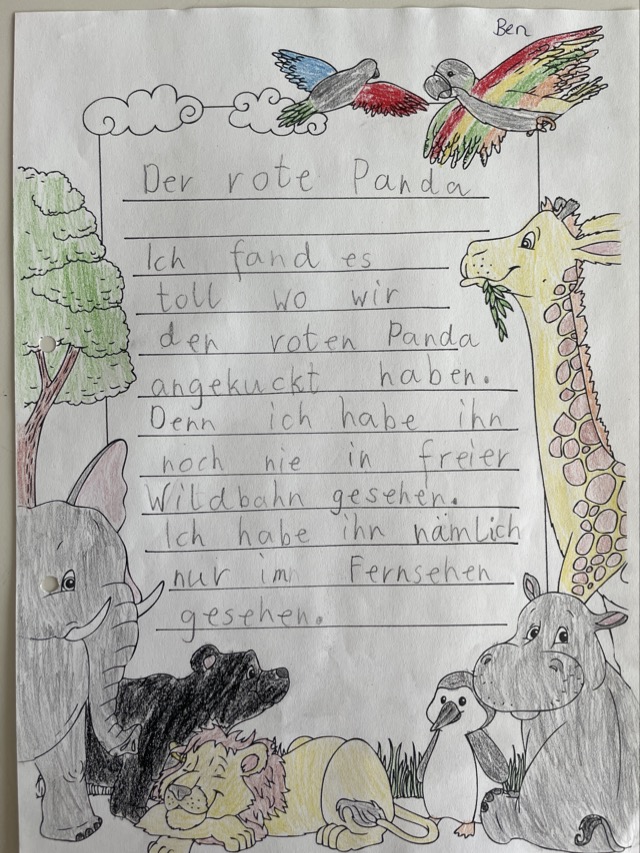 Ben
Der rote Panda
Ich fand es
toll wo wir
den roten Panda
angekuckt haben.
Denn ich habe ihn
noch nie in freier
Wildbahn gesehen.
Ich habe ihn nämlich
nur im Fernsehen
gesehen.